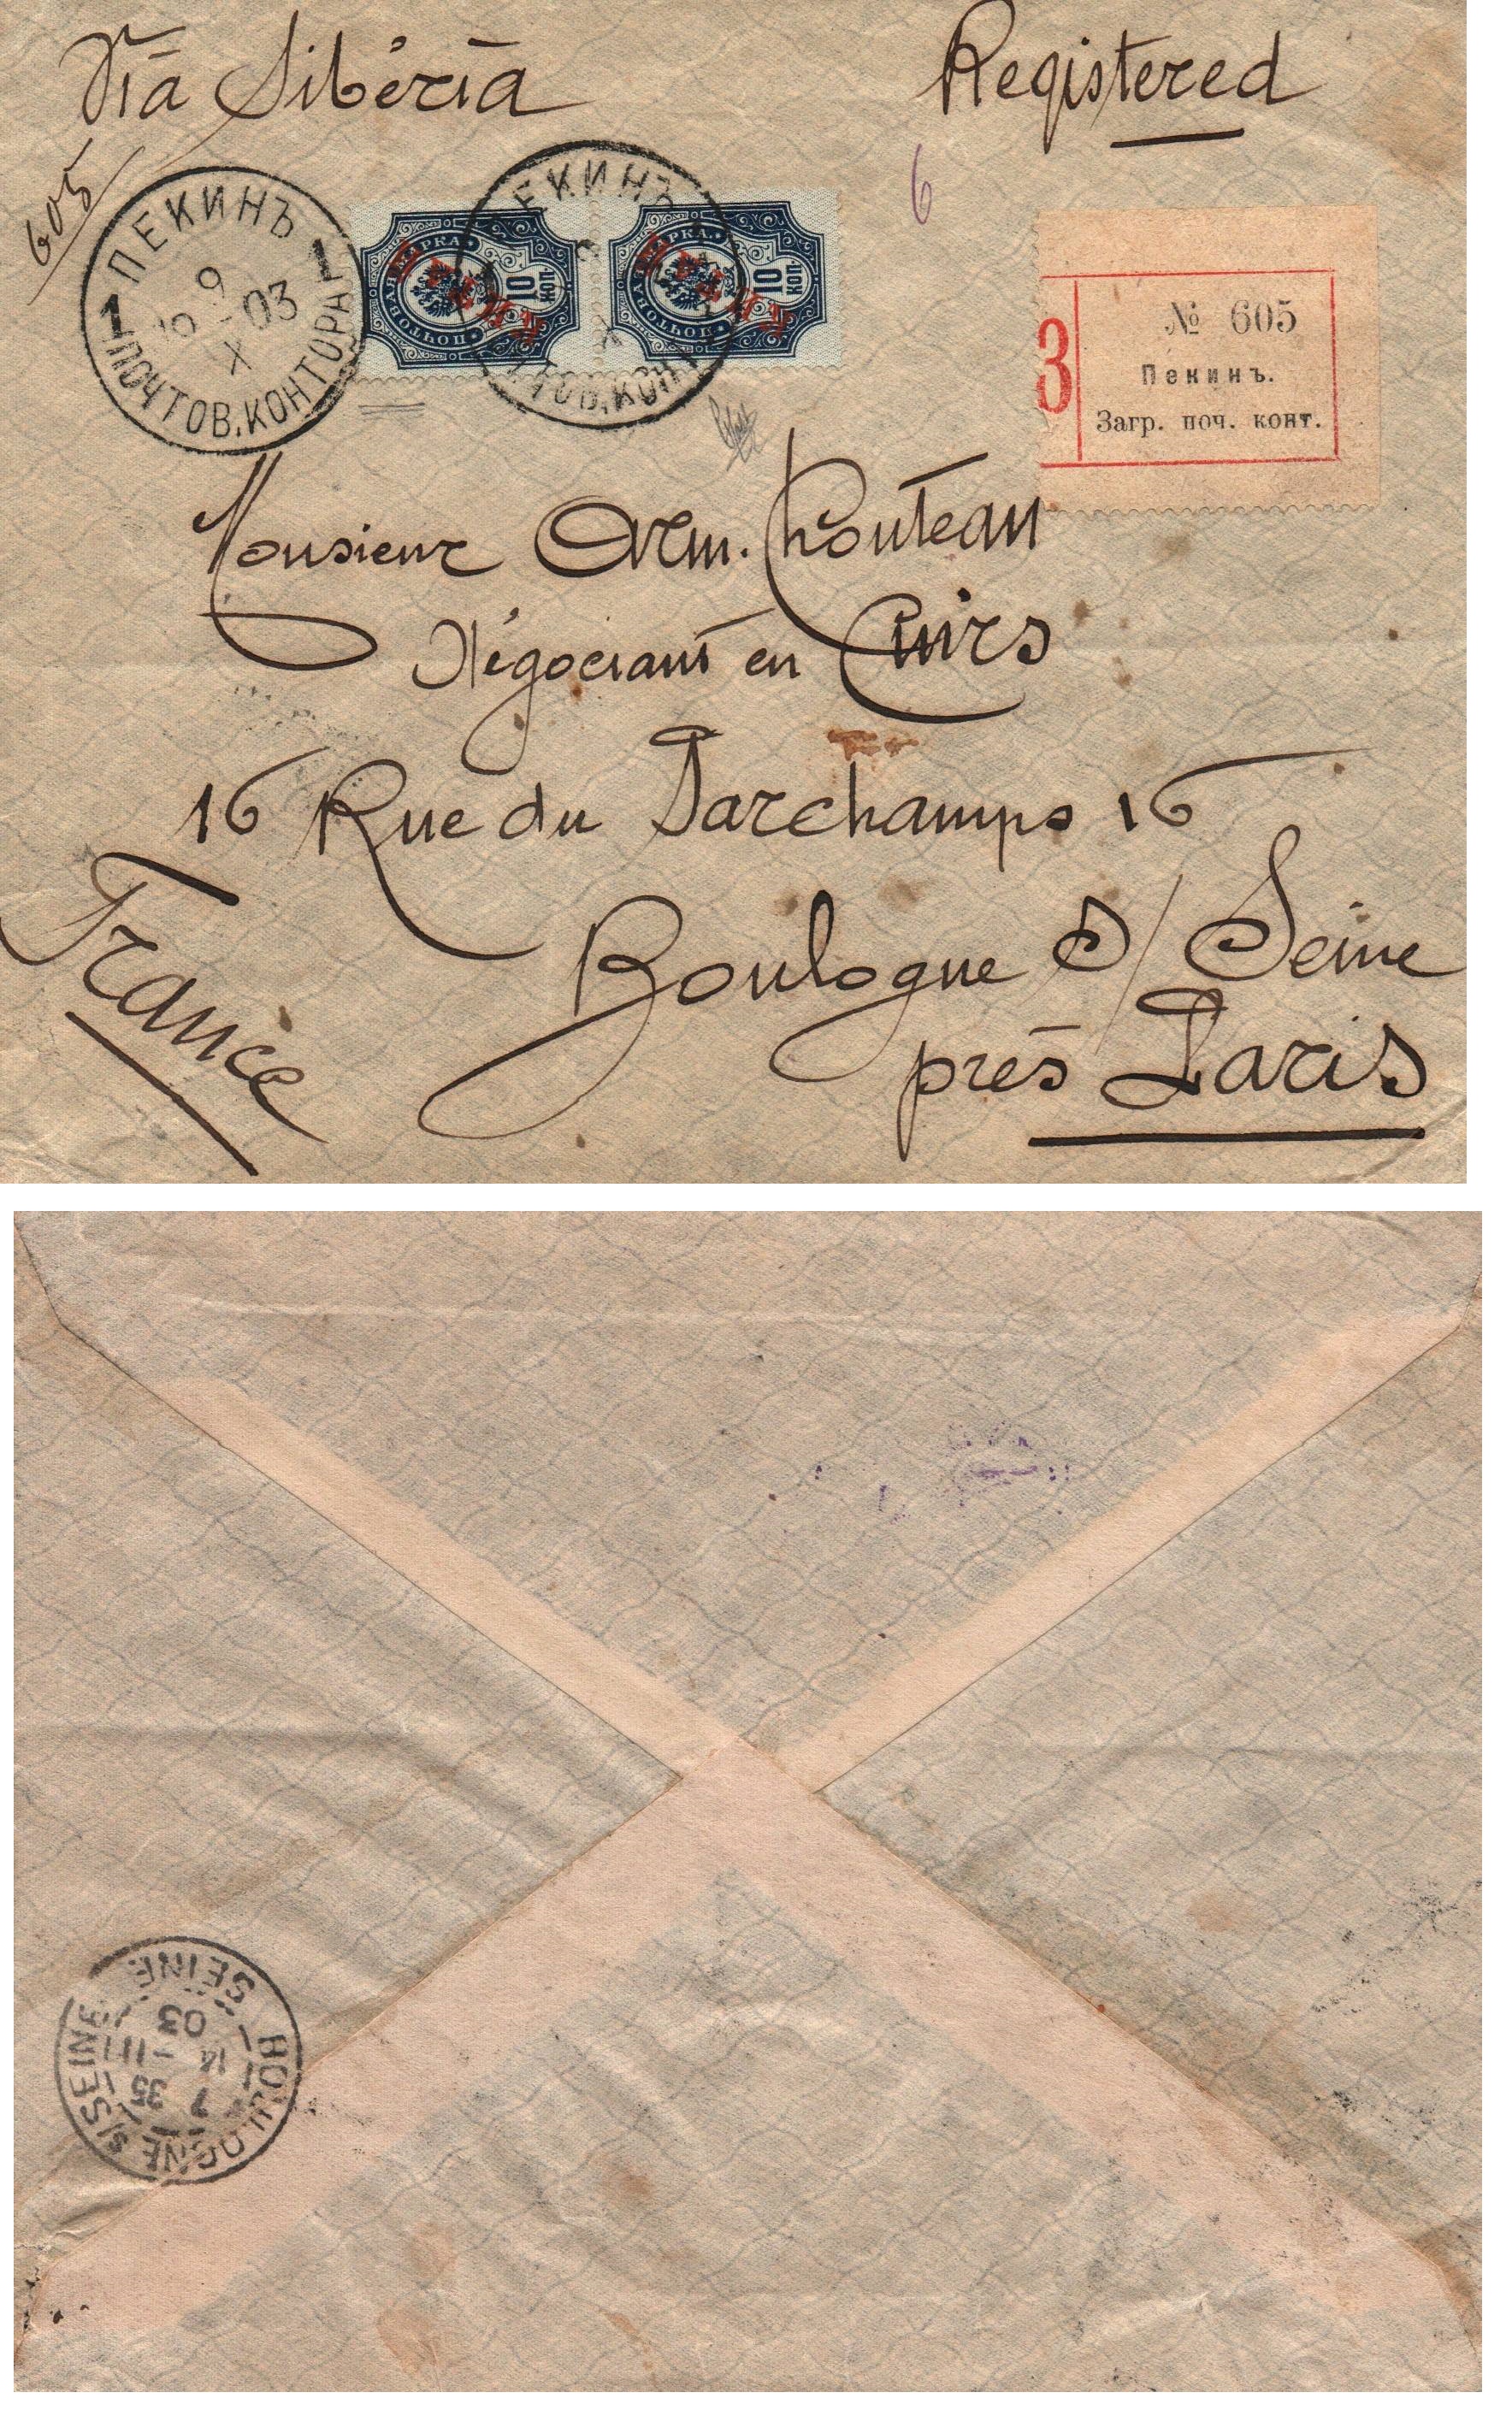 Via Sibéria
Registered
605
6
ПЕКИНЪ
1 1
9
X
03
ПОЧТОВ. КОНТОРА
МАРКА
10
КОП.
КИТАЙ
МАРКА
10
КОП.
КИТАЙ
ПЕКИНЪ
ПОЧТОВ. КОНТ
З
№ 605
Пекинъ.
Загр. поч. конт.
Monsieur Arm. Chouteau
Négociant en Cuirs
16 Rue du Parchamps 16
Boulogne s/ Seine
près Paris
France
BOULOGNE S/SEINE
7 35
14
03
SEINE